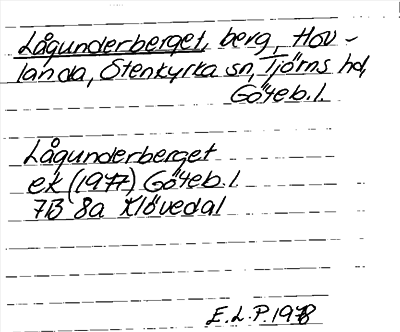 Lågunderberget, berg, Hov-
landa, Stenkyrka sn, Tjörns hd,
Göteb. l.
Lågunderberget
ek (1977) Göteb. l
7B 8a Klövedal
E.L.P. 1978